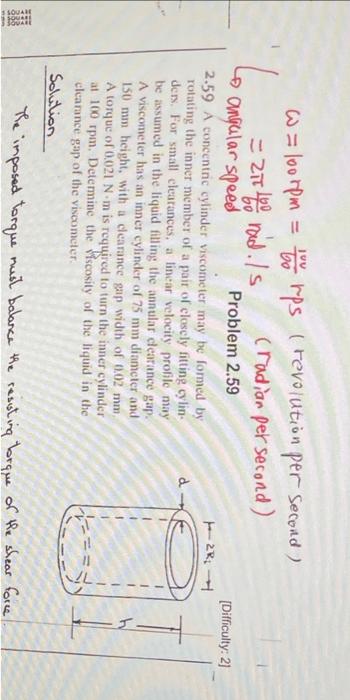 ω = 100 rpm = 100/60 rps (revolution per second)
= 2π 100/60 rad./s (radian per second)
↳ angular speed
Problem 2.59
[Difficulty: 2]
2.59 A concentric cylinder viscometer may be formed by
rotating the inner member of a pair of closely fitting cylin-
ders. For small clearances, a linear velocity profile may
be assumed in the liquid filling the annular clearance gap.
A viscometer has an inner cylinder of 75 mm diameter and
150 mm height, with a clearance gap width of 0.02 mm.
A torque of 0.021 N·m is required to turn the inner cylinder
at 100 rpm. Determine the viscosity of the liquid in the
clearance gap of the viscometer.
2Ri
d
h
Solution
The imposed torque must balance the resisting torque of the shear force.
SQUARE
SQUARE
SQUARE